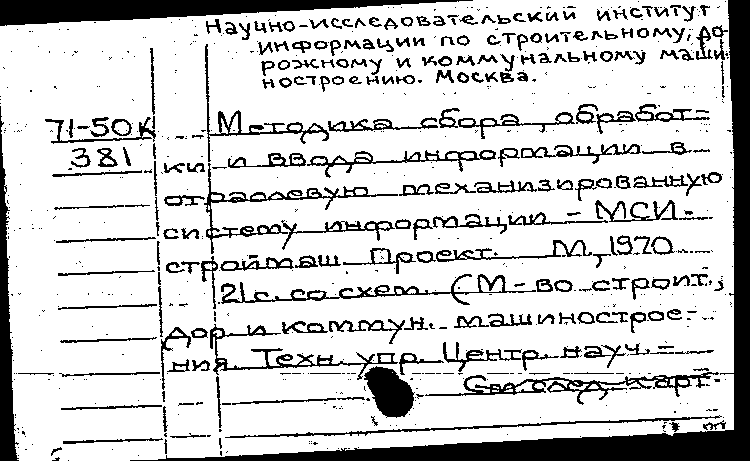 Научно-исследовательский институт
информации по строительному, до-
рожному и коммунальному маши-
ностроению. Москва.
71-50к Методика сбора, обработ=
381 ки и ввода информации в
отраслевую механизированную
систему информации - МСИ-
строймаш. Проект. М., 1970
21с. со схем. (М-во строит.,
дор. и коммун. машинострое-
ния. Техн. упр. Центр. науч.-=
См след. карт.